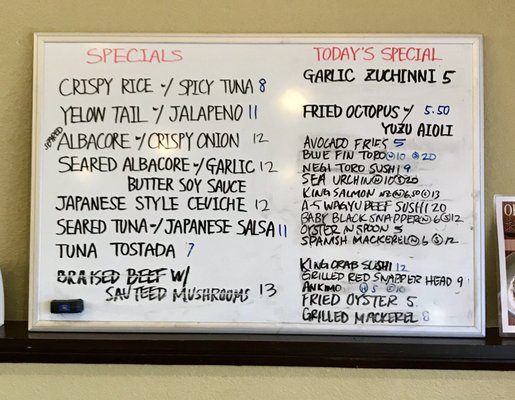 SPECIALS
CRISPY RICE w/ SPICY TUNA 8
YELOW TAIL w/ JALAPENO 11
SEARED
ALBACORE w/ CRISPY ONION 12
SEARED ALBACORE w/ GARLIC 12
BUTTER SOY SAUCE
JAPANESE STYLE CEVICHE 12
SEARED TUNA w/ JAPANESE SALSA 11
TUNA TOSTADA 7
BRAISED BEEF W/
SAUTEED MUSHROOMS 13
TODAY'S SPECIAL
GARLIC ZUCHINNI 5
FRIED OCTOPUS w/ 5.50
YUZU AIOLI
AVOCADO FRIES 5
BLUE FIN TORO Ⓝ10 Ⓢ20
NEGI TORO SUSHI 9
SEA URCHIN Ⓝ10 Ⓢ20
KING SALMON Ⓝ6.50 Ⓢ13
A-5 WAGYU BEEF SUSHI 20
BABY BLACK SNAPPER Ⓝ6 Ⓢ12
OYSTER IN SPOON 5
SPANISH MACKEREL Ⓝ6 Ⓢ12
KING CRAB SUSHI 12
GRILLED RED SNAPPER HEAD 9
ANKIMO 5 10
FRIED OYSTER 5
GRILLED MACKEREL 8